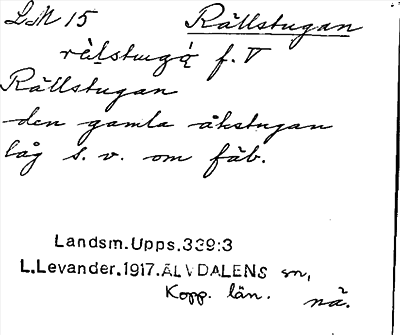 LM 15 Rällstugan
rälstugą f. V
Rällstugan
den gamla åkstugan
låg s. v. om fäb.
Landsm.Upps.339:3
L.Levander.1917.ÄLVDALENS sn,
Kopp. län. nä.